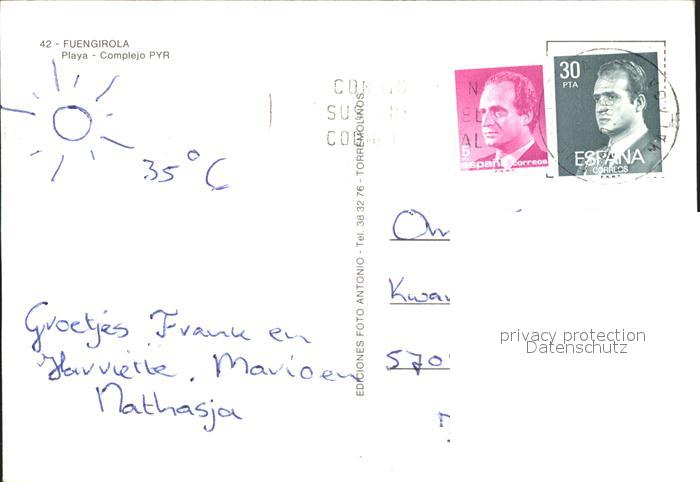 42 - FUENGIROLA
Playa - Complejo PYR
35°C
Groetjes Frank en
Harriëtte, Mario en
Nathasja
EDICIONES FOTO ANTONIO - Tel. 38 32 76 - TORREMOLINOS
5
españa correos
30
PTA
ESPAÑA
CORREOS
Om
Kwar
570
privacy protection
Datenschutz